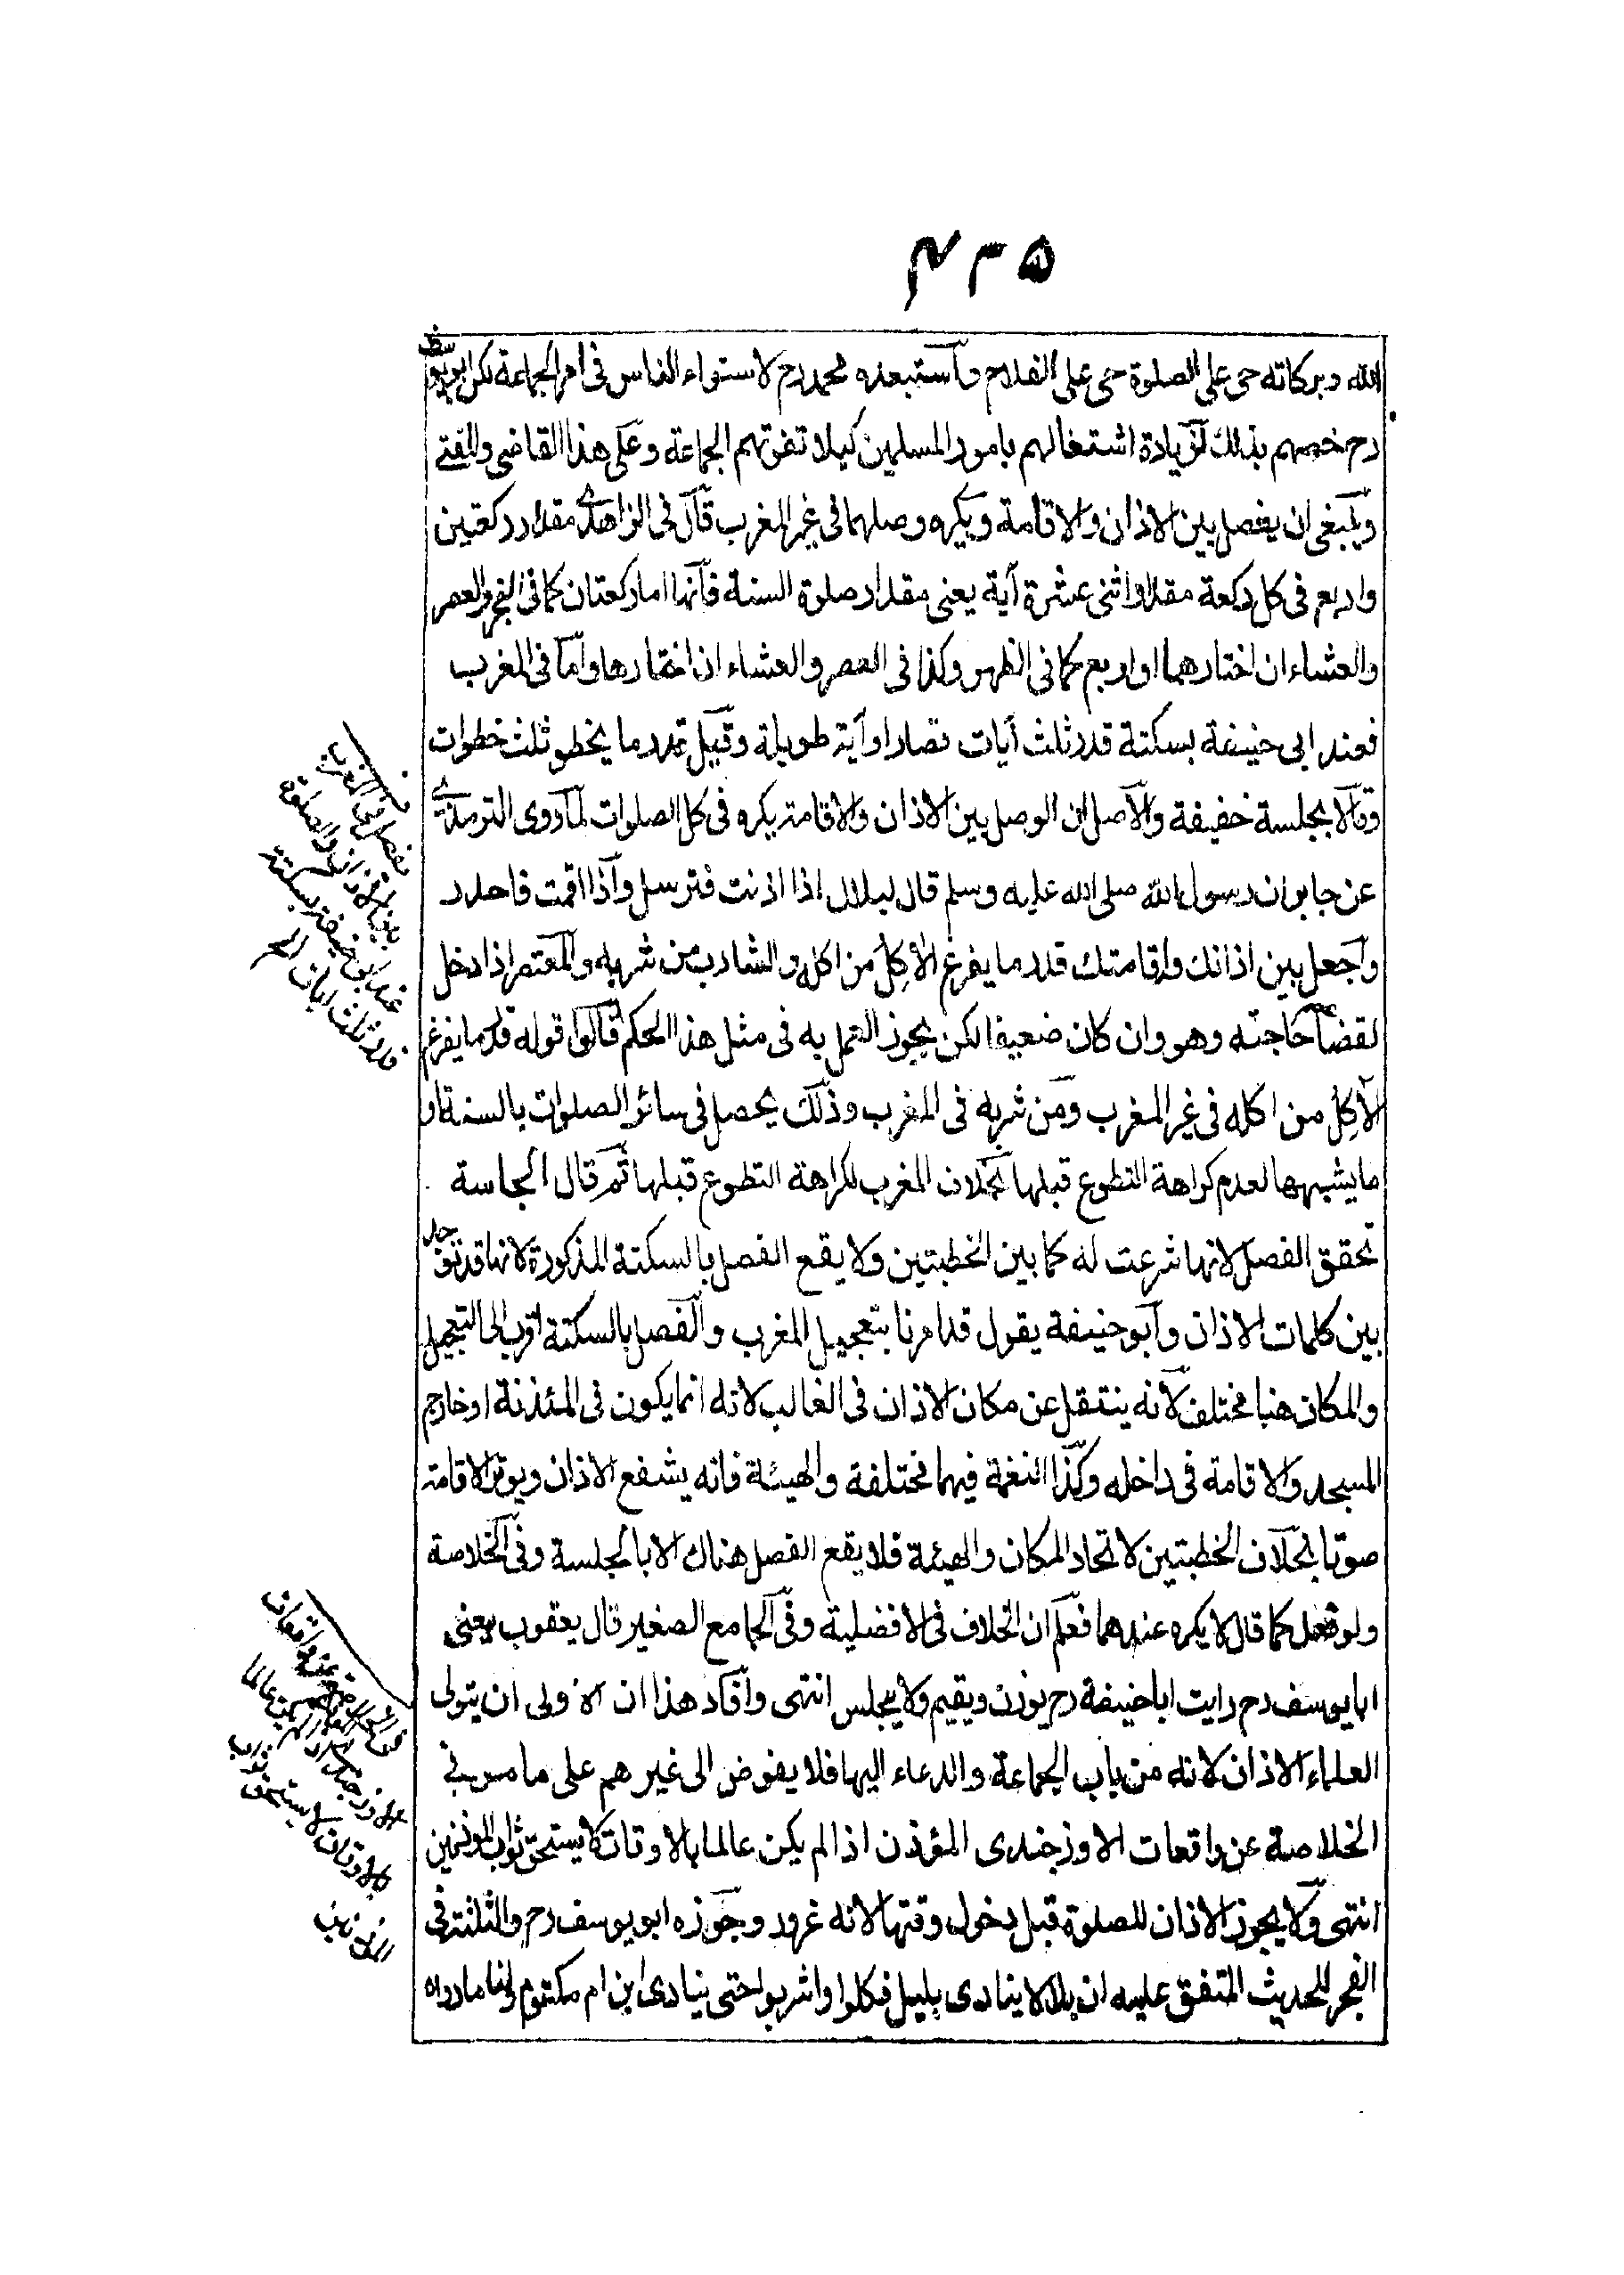 ۴۳۵
الله وبركاته حى على الصلوة حى على الفلاح واستبعده محمد رح لاستواء الناس فى امر الجماعة لكن ابو يوسف
رح خصهم بذلك لزيادة اشتغالهم بامور المسلمين كيلا تفوتهم الجماعة وعلى هذا القاضى والمفتى
وينبغى ان يفصل بين الاذان والاقامة ويكره وصلهما فى غير المغرب قال فى الزاهدى مقدار ركعتين
واربع فى كل ركعة مقدار اثنى عشرة آية يعنى مقدار صلوة السنة فانها اما ركعتان كما فى الفجر والعصر
والعشاء ان اختارهما او اربع كما فى الظهر وكذا فى العصر والعشاء ان اختارها واما فى المغرب
فعند ابى حنيفة بسكتة قدر ثلث آيات قصار او آية طويلة وقيل قدر ما يخطو ثلث خطوات
وقالا بجلسة خفيفة والاصل ان الوصل بين الاذان والاقامة يكره فى كل الصلوات لما روى الترمذى
عن جابر ان رسول الله صلى الله عليه وسلم قال لبلال اذا اذنت فترسل واذا اقمت فاحدر
واجعل بين اذانك واقامتك قدر ما يفرغ الآكِل من اكله والشارب من شربه والمعتصر اذا دخل
لقضاء حاجته وهو وان كان ضعيفا لكن يجوز العمل به فى مثل هذا الحكم قالوا قوله قدر ما يفرغ
الآكِل من اكله فى غير المغرب ومن شربه فى المغرب وذلك يحصل فى سائر الصلوات بالسنة او
ما يشبهها لعدم كراهة التطوع قبلها بخلاف المغرب لكراهة التطوع قبلها ثم قال الجلسة
تحقق الفصل لانها شرعت له كما بين الخطبتين ولا يقع الفصل بالسكتة المذكورة لانها قد توجد
بين كلمات الاذان وابو حنيفة يقول قد امرنا بتعجيل المغرب والفصل بالسكتة اقرب الى التعجيل
والمكان هنا مختلف لانه ينتقل عن مكان الاذان فى الغالب لانه انما يكون فى المئذنة او خارج
المسجد والاقامة فى داخله وكذا النغمة فيهما مختلفة والهيئة فانه يشفع الاذان ويوتر الاقامة
صوتا بخلاف الخطبتين لاتحاد المكان والهيئة فلا يقع الفصل هناك الا بالجلسة وفى الخلاصة
ولو فعل كما قال لا يكره عندهما فعلم ان الخلاف فى الافضلية وفى الجامع الصغير قال يعقوب يعنى
ابا يوسف رح رايت ابا حنيفة رح يوذن ويقيم ولا يجلس انتهى وافاد هذا ان الاولى ان يتولى
العلماء الاذان لانه من باب الجماعة والدعاء اليها فلا يفوض الى غيرهم على ما مر فى
الخلاصة عن واقعات الاوزجندى المؤذن اذا لم يكن عالما بالاوقات لا يستحق ثواب الموذنين
انتهى ولا يجوز الاذان للصلوة قبل دخول وقتها لانه غرور وجوزه ابو يوسف رح والثلثة فى
الفجر للحديث المتفق عليه ان بلالا ينادى بليل فكلوا واشربوا حتى ينادى ابن ام مكتوم ولنا ما رواه
يفصل فى المغرب
بين الاذان والصلوة
عند ابى حنيفة بسكتة
قدر ثلث ايات
عالما
بالاوقات لا يستحق ثواب